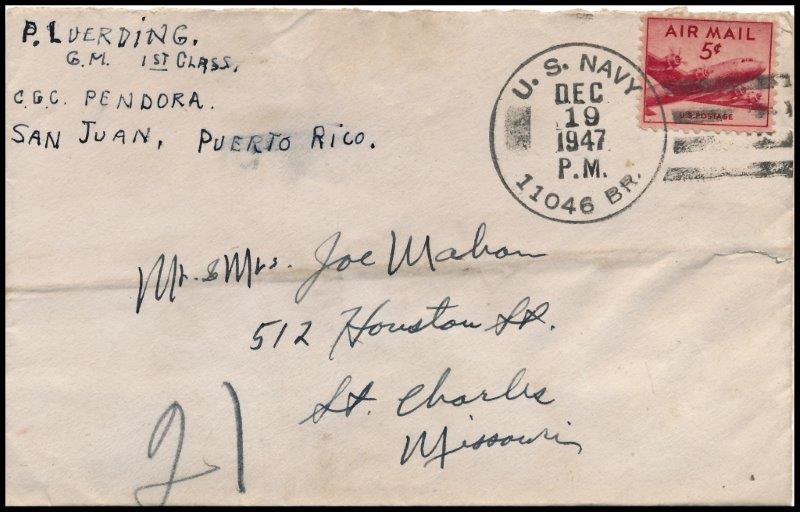 P. LUERDING.
G.M. 1ST CLASS.
C.G.C. PENDORA.
SAN JUAN, PUERTO RICO.
U. S. NAVY
DEC
19
1947
P.M.
11046 BR.
AIR MAIL
5¢
U.S. POSTAGE
Mr. & Mrs. Joe Mahon
512 Houston St.
St. Charles
Missouri
21